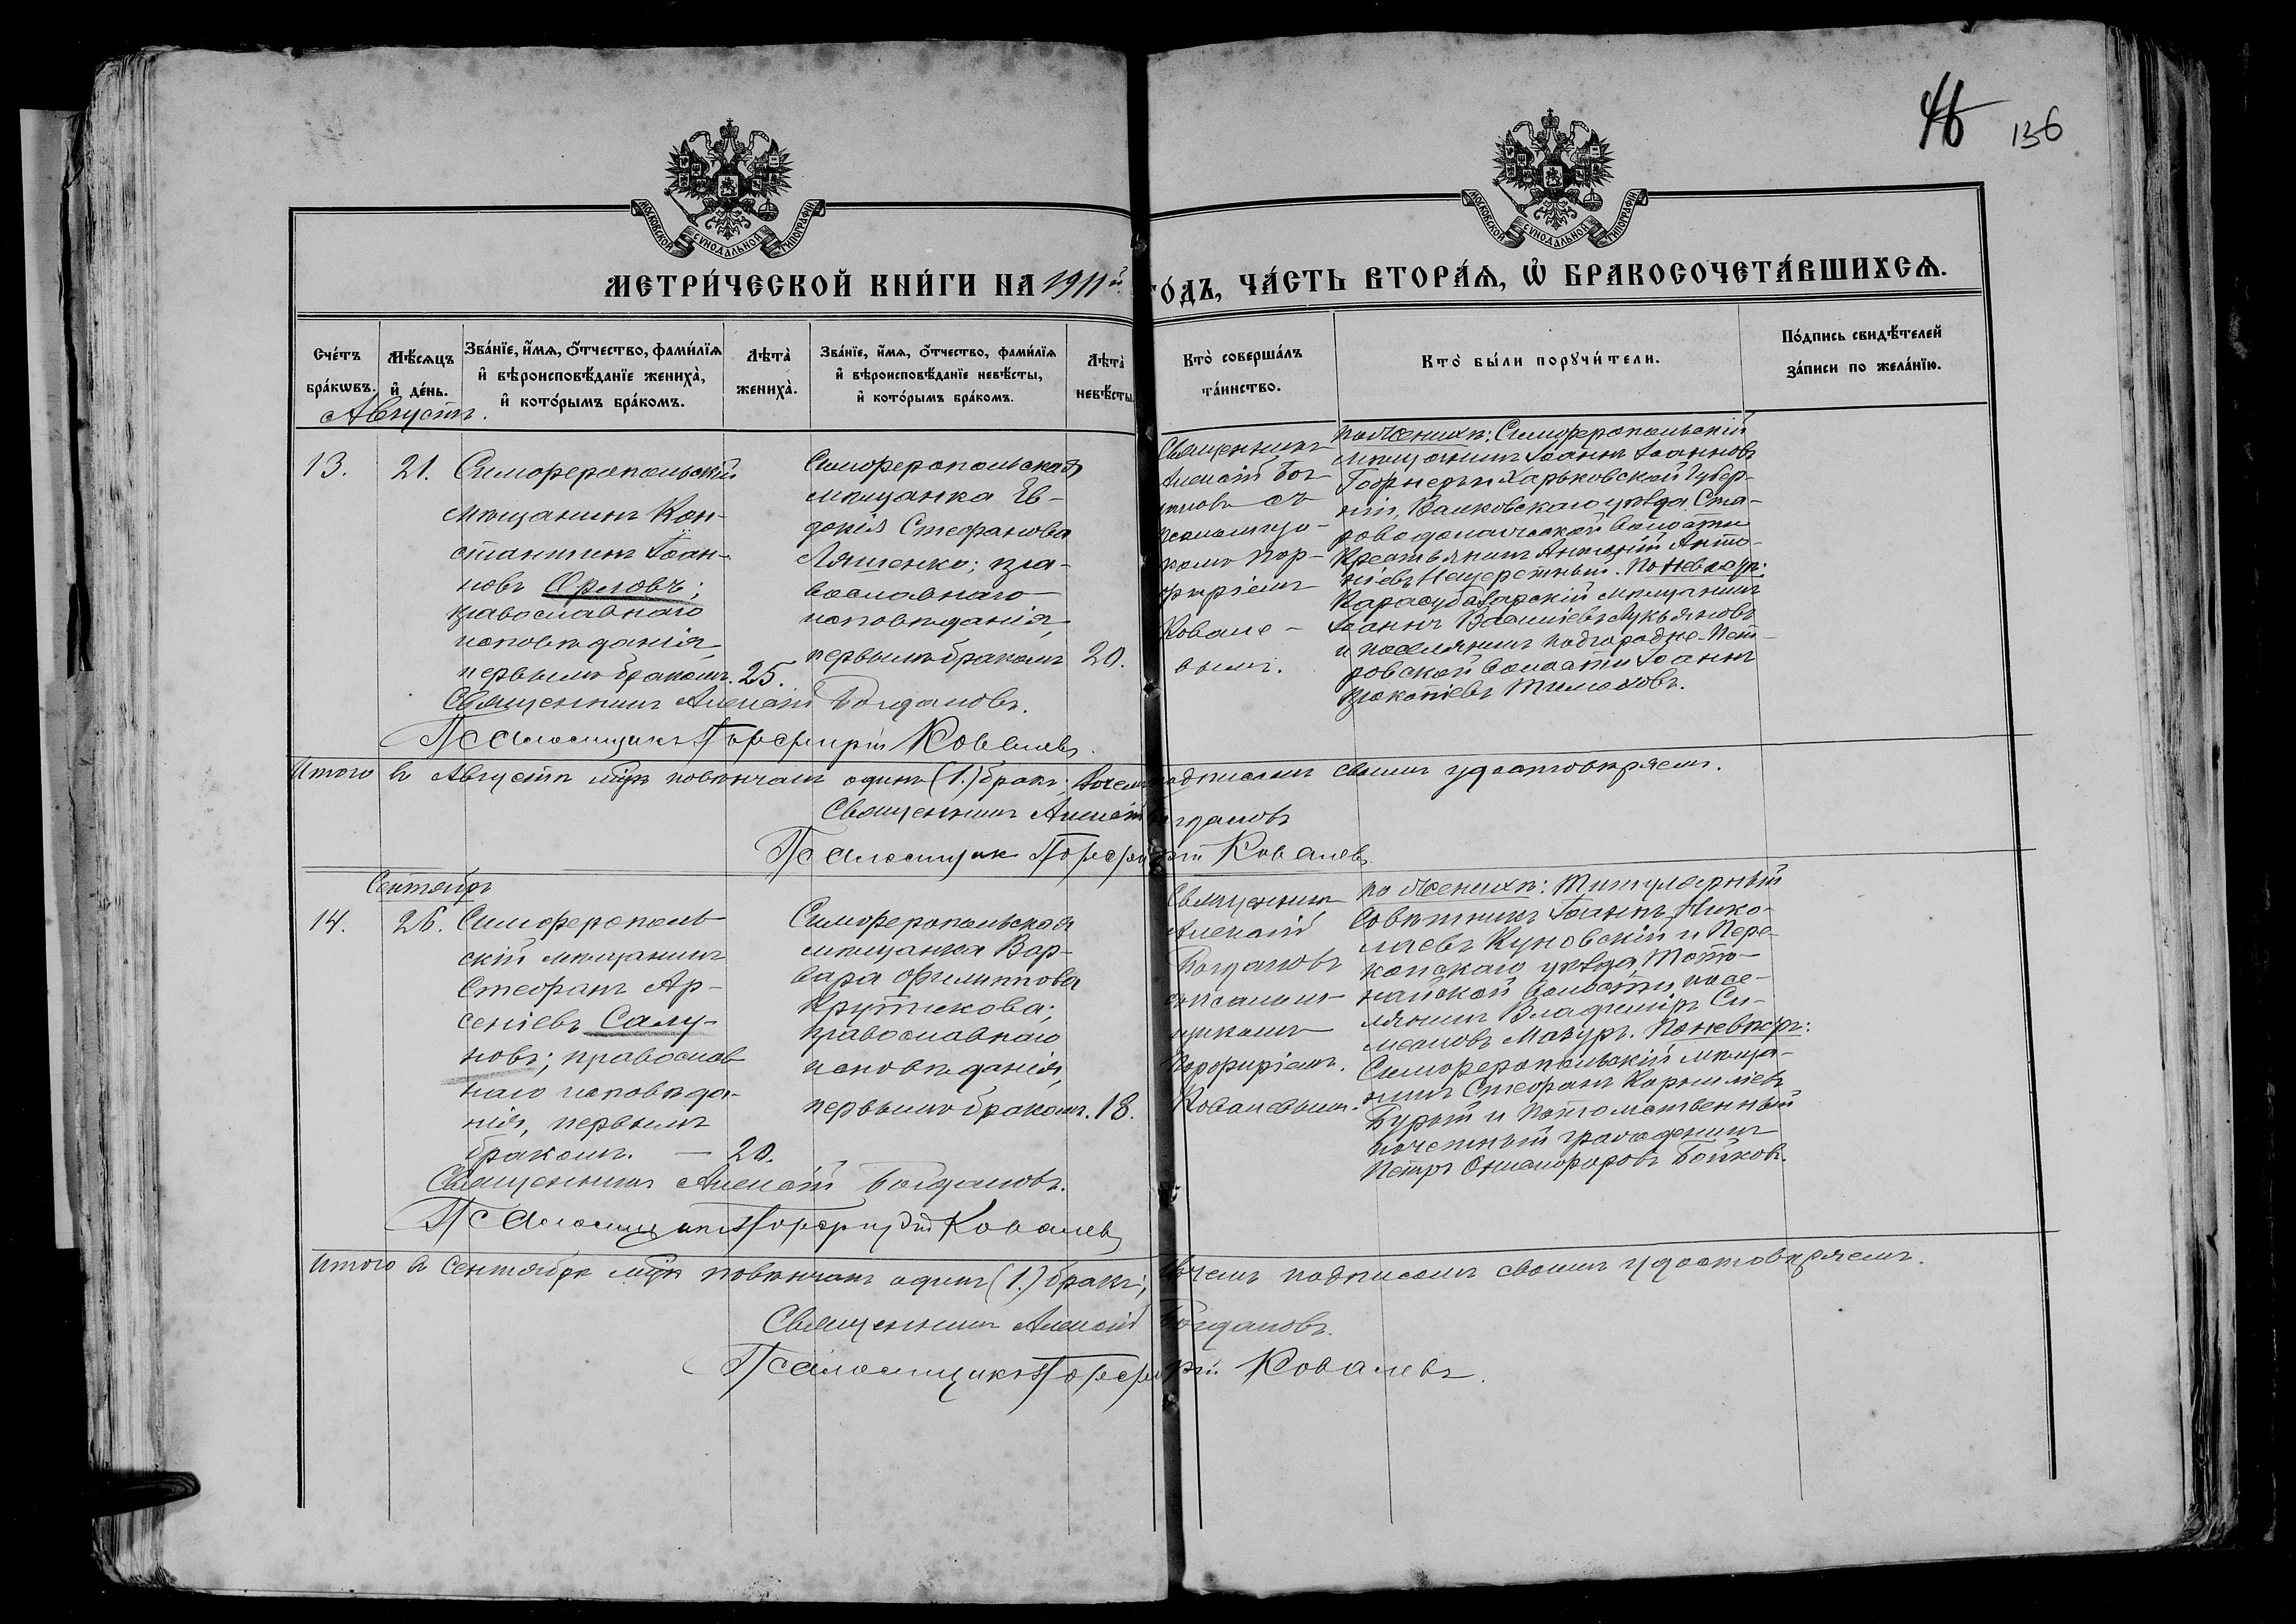 46 136
МОСКОВСКОЙ СУНОДАЛЬНОЙ ТИПОГРАФІИ
МОСКОВСКОЙ СУНОДАЛЬНОЙ ТИПОГРАФІИ
МЕТРИ́ЧЕСКОЙ КНИ́ГИ НА 1911й ГО́ДЪ, ЧА́СТЬ ВТОРА́Я, Ѡ҆ БРАКОСОЧЕТА́ВШИХСЯ.
Сче́тъ бра́кѡвъ.
Мѣ́сяцъ и҆ де́нь.
Зва́нїе, и҆́мя, ѻ҆́тчество, фами́лїя
и҆ вѣроисповѣ́данїе жениха̀,
и҆ кото́рымъ бра́комъ.
Лѣта̀
жениха̀.
Зва́нїе, и҆́мя, ѻ҆́тчество, фами́лїя
и҆ вѣроисповѣ́данїе невѣ́сты,
и҆ кото́рымъ бра́комъ.
Лѣта̀
невѣ́сты.
Кто̀ соверша́лъ
та́инство.
Кто̀ бы́ли порꙋчи́тели.
По́дпись свидѣ́телей
за́писи по жела́нїю.
Августъ.
13.
21.
Симферопольскій
мѣщанинъ Кон-
стантинъ Іоан-
новъ Орловъ;
православнаго
исповѣданія,
первымъ бракомъ.
25.
Симферопольская
мѣщанка Ев-
докія Стефанова
Ляшенко; пра-
вославнаго
исповѣданія,
первымъ бракомъ
20.
Священникъ
Алексій Бог-
дановъ съ
псаломщи-
комъ Пор-
фиріемъ
Ковале-
вымъ.
по женихѣ: Симферопольскій
мѣщанинъ Іоаннъ Іоанновъ
и Харьковской губер-
ніи, Валковскаго уѣзда, Ста-
роводолажской волости
крестьянинъ Антоній Анто-
ніевъ Очеретный. По невѣстѣ:
Карасубазарскій мѣщанинъ
Іоаннъ Васильевъ Лукьяновъ
и поселянинъ Подгородне-Пет-
ровской волости Іоаннъ
Прокопіевъ Тимоховъ.
Священникъ Алексій Богдановъ.
Псаломщикъ Порфирій Ковалевъ.
Итого въ Августѣ м҃цѣ повѣнчанъ одинъ (1.) бракъ; въ чемъ подписомъ своимъ удостовѣряемъ.
Священникъ Алексій Богдановъ
Псаломщик Порфирій Ковалевъ
Сентябрь
14.
26.
Симферополь-
скій мѣщанинъ
Стефанъ Ар-
сеніевъ Салу-
новъ; православ-
наго исповѣда-
нія, первымъ
бракомъ. —
20.
Симферопольская
мѣщанка Вар-
вара Филиппова
Крутикова;
православнаго
исповѣданія,
первымъ бракомъ.
18.
Священникъ
Алексій
Богдановъ
съ псалом-
щикомъ
Порфиріемъ
Ковалевымъ.
по женихѣ: Титулярный
Совѣтникъ Іоаннъ Нико-
лаевъ Куновскій и Пере-
копскаго уѣзда, Тото-
найской волости посе-
лянинъ Владиміръ Си-
меоновъ Мазуръ. По невѣстѣ:
Симферопольскій мѣща-
нинъ Стефанъ Корниліевъ
Бурый и Потомственный
почетный гражданинъ
Петръ Онисифоровъ Бойковъ.
Священникъ Алексій Богдановъ.
Псаломщикъ Порфирій Ковалевъ
Итого въ Сентябрѣ м҃цѣ повѣнчанъ одинъ (1.) бракъ; въ чемъ подписомъ своимъ удостовѣряемъ.
Священникъ Алексій Богдановъ.
Псаломщикъ Порфирій Ковалевъ.